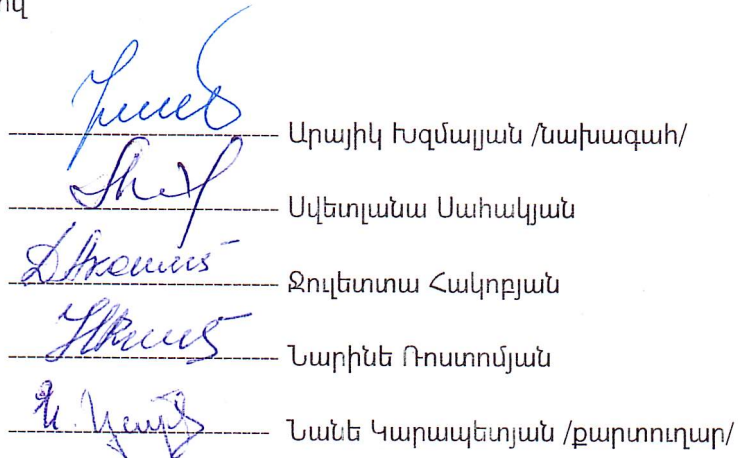 Արայիկ Խզմալյան /նախագահ/
Սվետլանա Սահակյան
Ջուլետտա Հակոբյան
Նարինե Ռոստոմյան
Նանե Կարապետյան /քարտուղար/